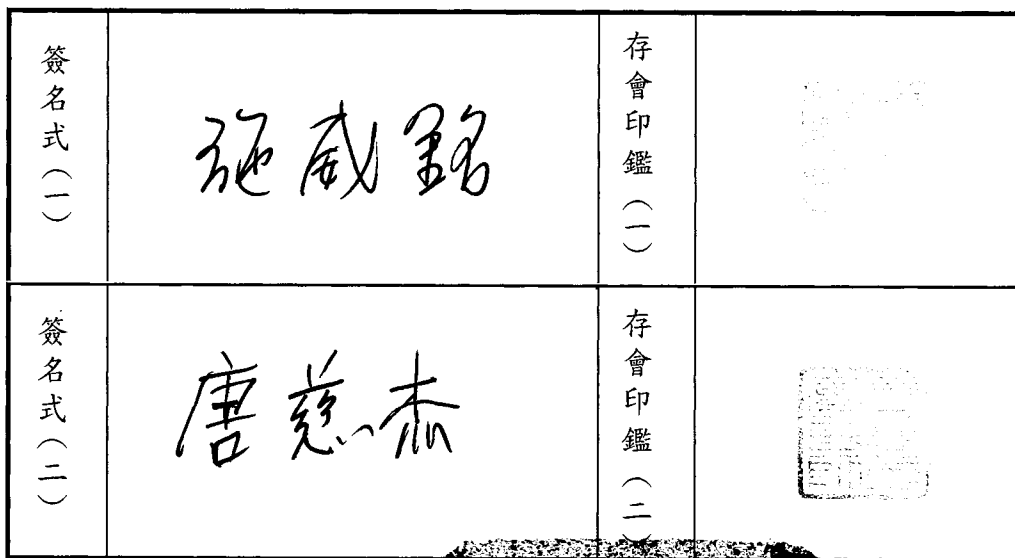 簽名式（一）
施威銘
存會印鑑（一）
簽名式（二）
唐慈杰
存會印鑑（二）